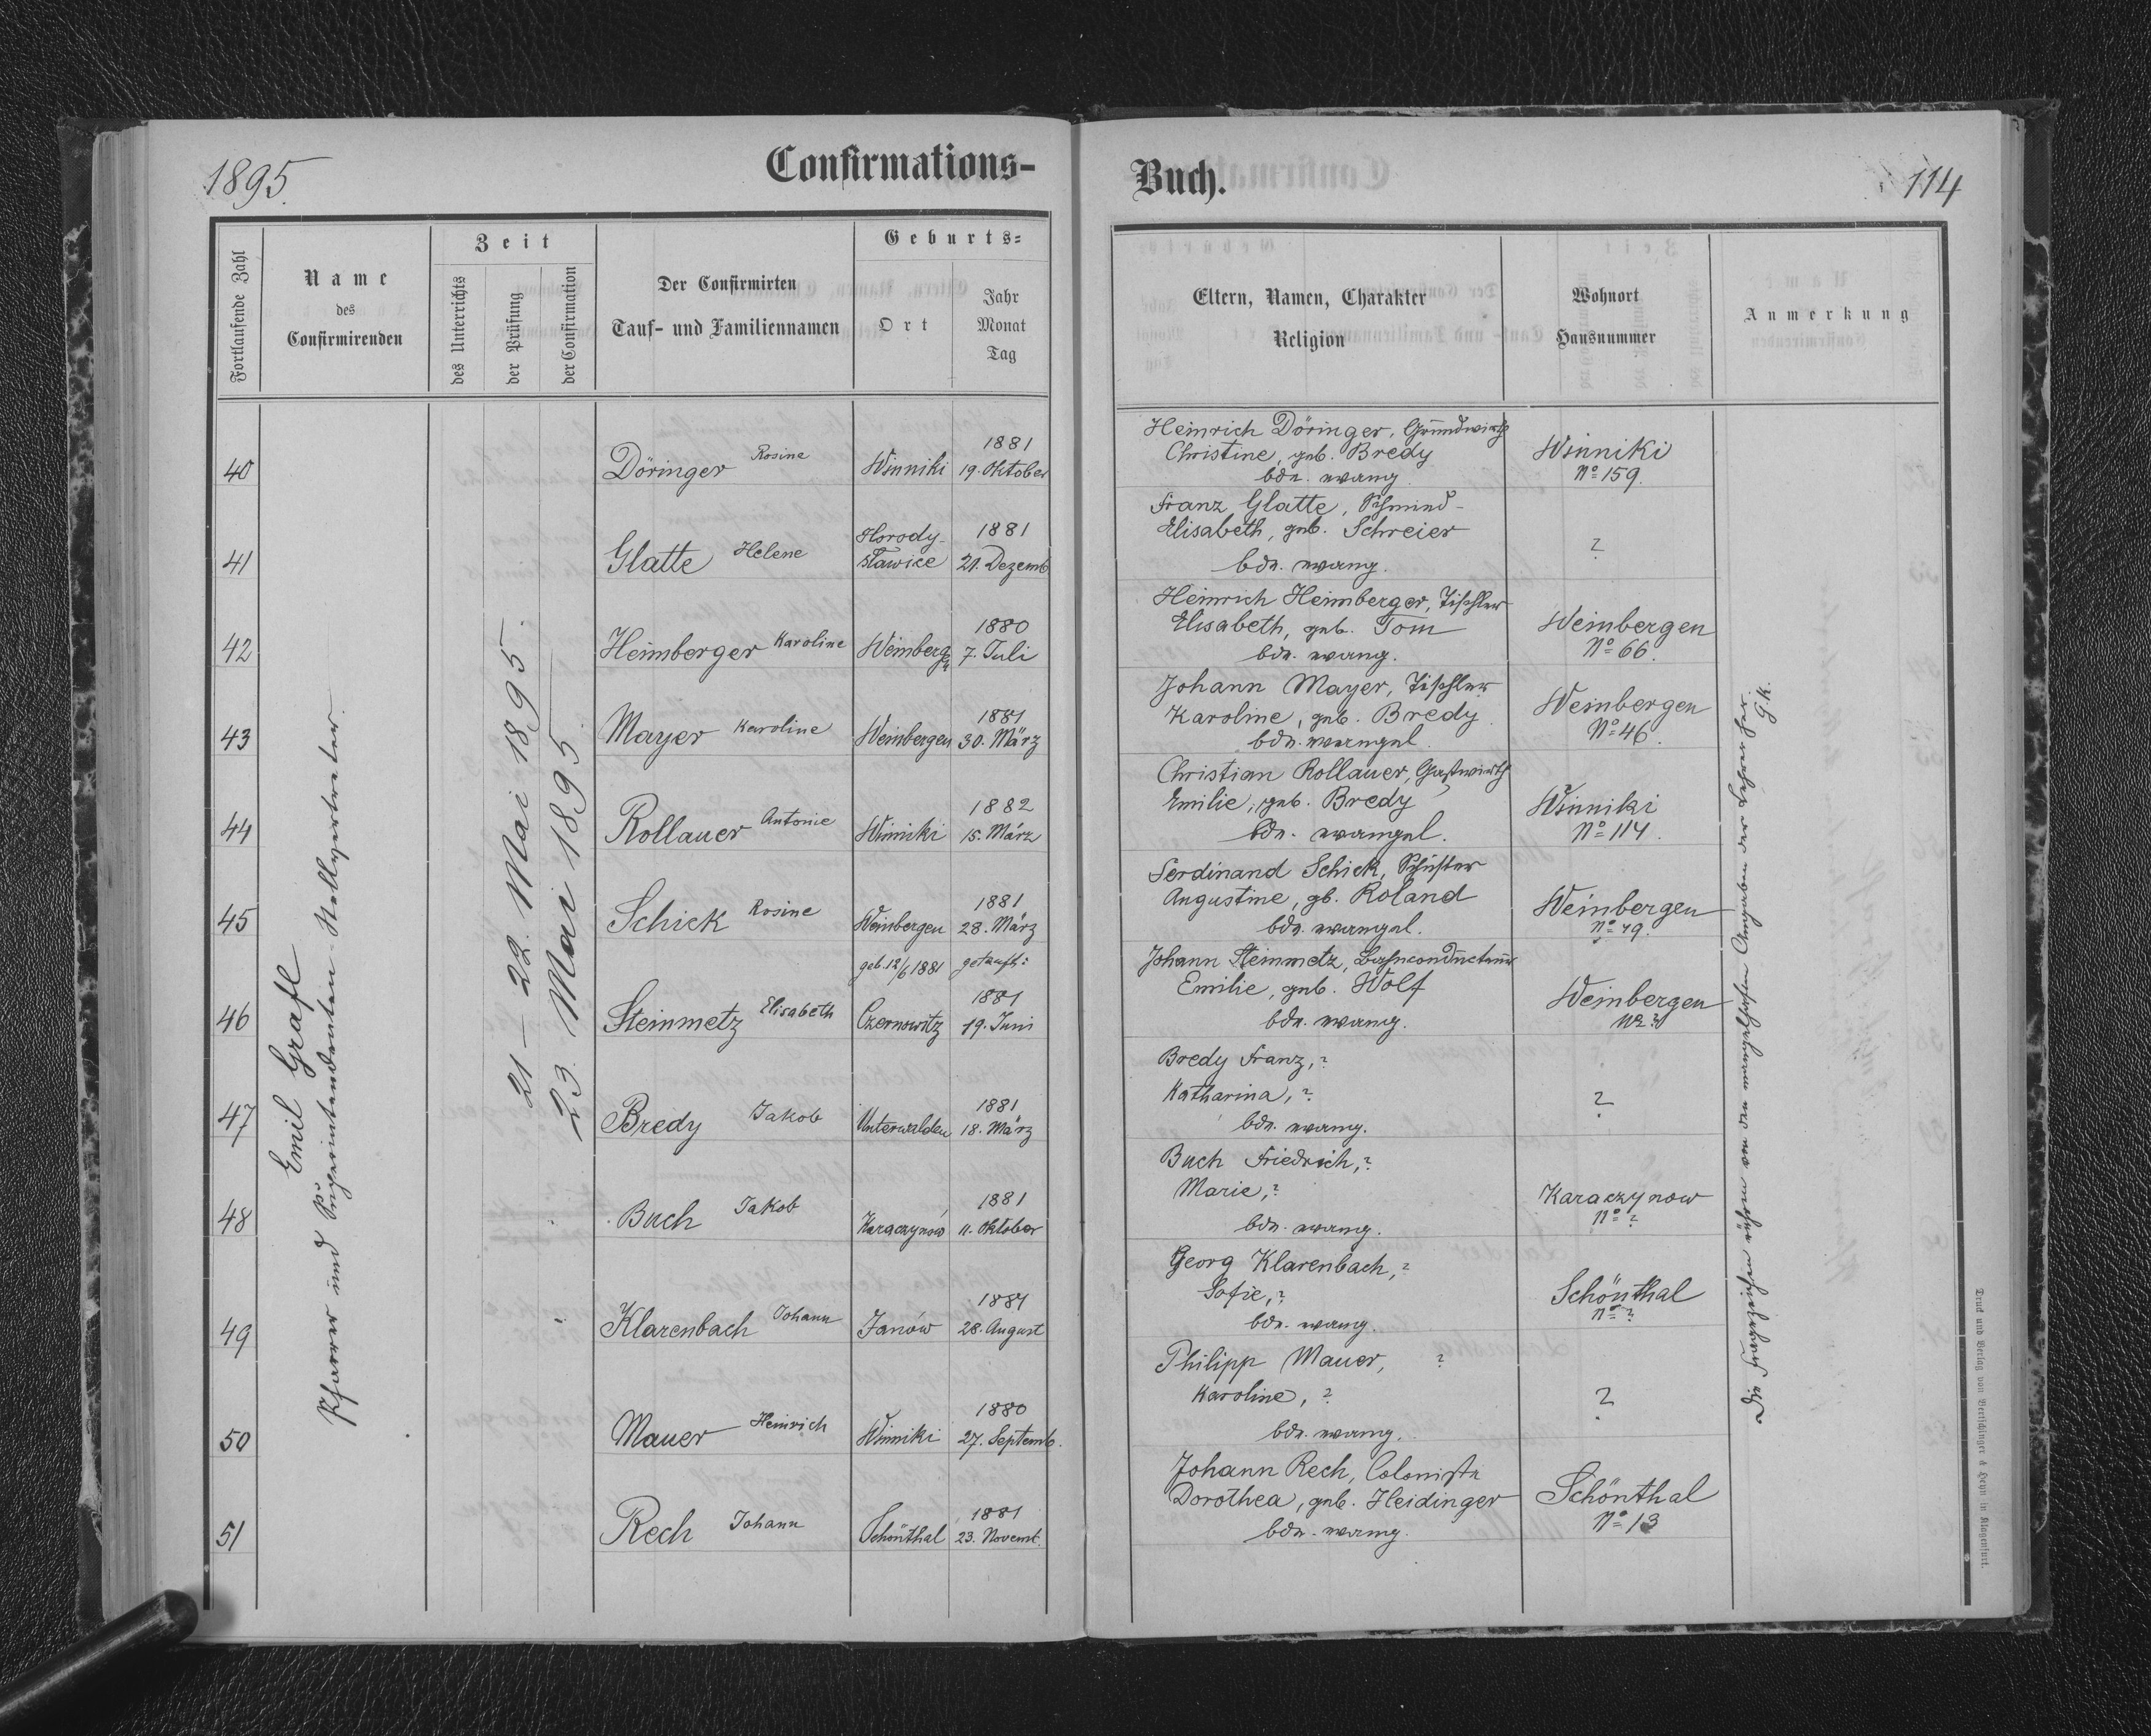 1895.
Confirmations-
Fortlaufende Zahl
Name
des
Confirmirenden
Zeit
des Unterrichts
der Prüfung
der Confirmation
Der Confirmirten
Tauf- und Familiennamen
Geburts-
Ort
Jahr
Monat
Tag
Emil Grafl
Pfarrer und Superintendenten-Stellvertreter.
21 – 22. Mai 1895.
23. Mai 1895.
40
Döringer Rosine
Winniki
1881
19. Oktober
41
Glatte Helene
Horody-
sławice
1881
21. Dezemb
42
Heimberger Karoline
Weinbergen
1880
7. Juli
43
Mayer Karoline
Weinbergen
1881
30. März
44
Rollauer Antonie
Winniki
1882
15. März
45
Schick Rosine
Weinbergen
1881
28. März
46
Steinmetz Elisabeth
geb. 12/6 1881
Czernowitz
getauft:
1881
19. Juni
47
Bredy Jakob
Unterwalden
1881
18. März
48
Buch Jakob
Karaczynow
1881
11. Oktober
49
Klarenbach Johann
Janów
1881
28. August
50
Mauer Heinrich
Winniki
1880
27. Septemb.
51
Rech Johann
Schönthal
1881
23. Novemb.
Buch.
114
Eltern, Namen, Charakter
Religion
Wohnort
Hausnummer
Anmerkung
Heinrich Döringer, Grundwirth
Christine, geb. Bredy
bde. evang.
Winniki
No 159.
Franz Glatte, Schmied
Elisabeth, geb. Schreier
bde. evang.
?
Heinrich Heimberger, Tischler
Elisabeth, geb. Tom
bde. evang.
Weinbergen
No 66.
Johann Mayer, Tischler
Karoline, geb. Bredy
bde. evangel.
Weinbergen
No 46.
Christian Rollauer, Gastwirth
Emilie, geb. Bredy
bde. evangel.
Winniki
No 114.
Ferdinand Schick, Schuster
Augustine, gb. Roland
bde. evangel.
Weinbergen
No 49.
Johann Steinmetz, Bahnconducteur
Emilie, geb. Wolf
bde. evang.
Weinbergen
No ?
Bredy Franz, ?
Katharina, ?
bde. evang.
?
Buch Friedrich, ?
Marie, ?
bde. evang.
Karaczynow
No ?
Georg Klarenbach, ?
Sofie, ?
bde. evang.
Schönthal
No ?
Philipp Mauer, ?
Karoline, ?
bde. evang.
?
Johann Rech, Coloniste
Dorothea, geb. Heidinger
bde. evang.
Schönthal
No 13
Die Fragezeichen rühren von den mangelhaften Angaben der Lehrer her.
G.k.
Druck und Verlag von Bertschinger & Heyn in Klagenfurt.